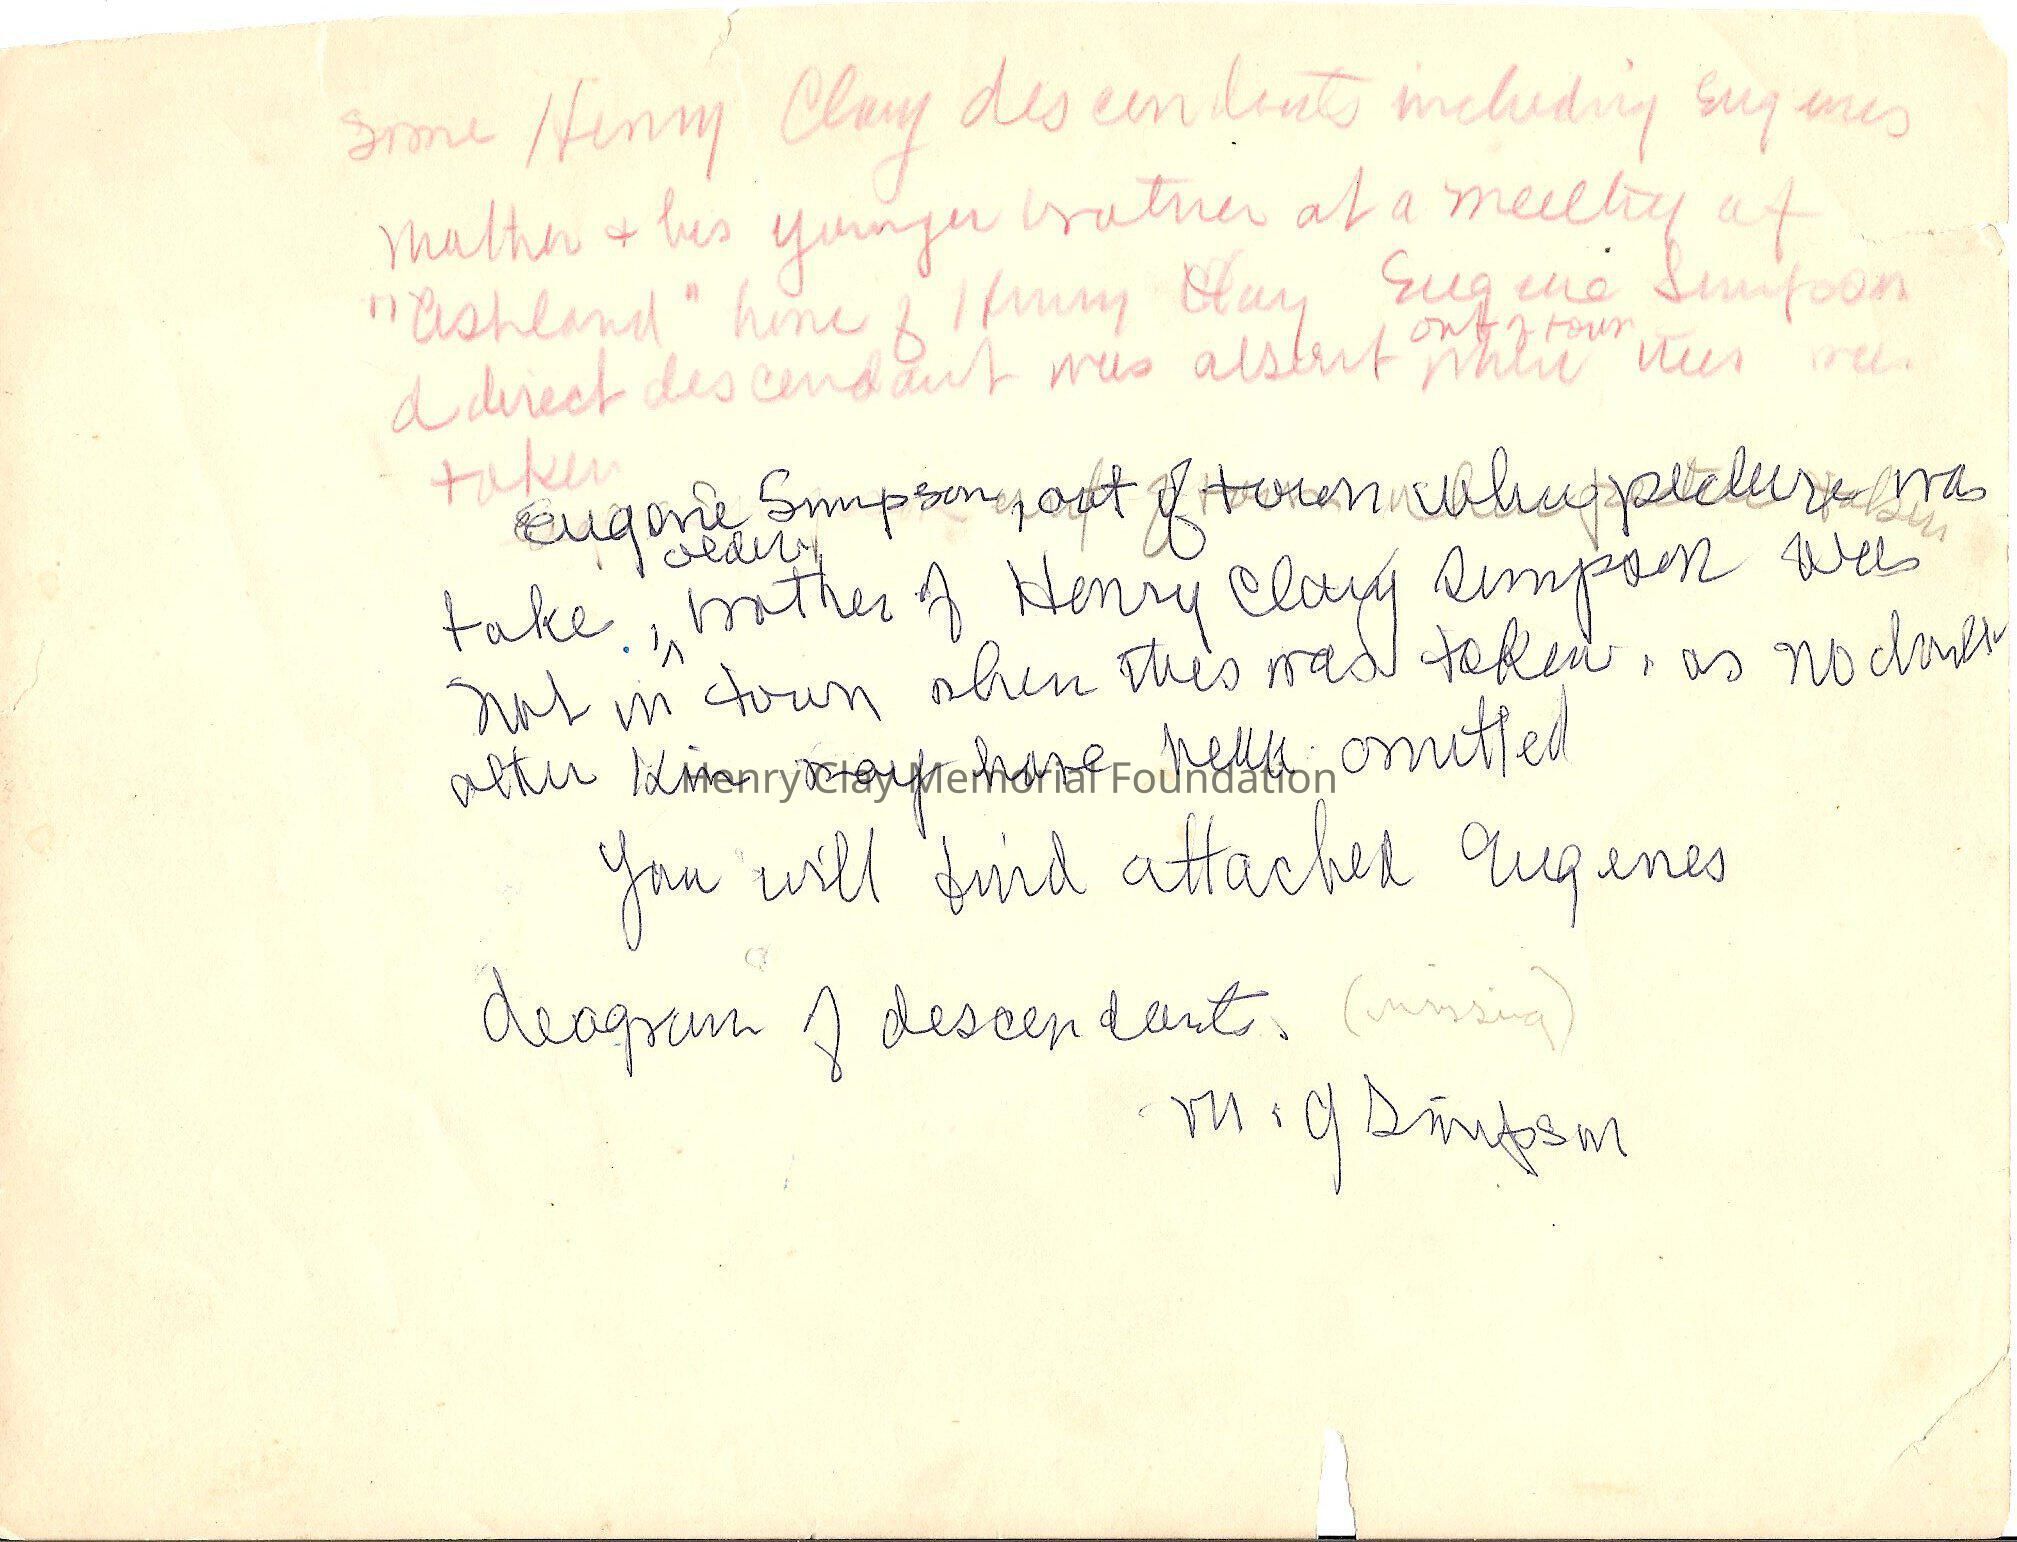 Some Henry Clay descendants including Eugenes
Mother + his younger brother at a meeting at
"Ashland" home of Henry Clay Eugene Simpson
out of town
a direct descendant was absent when this was
taken
Eugene Simpson, out of town when picture was
older
take, brother of Henry Clay Simpson was
not in town when this was taken, as no doubt
other kin may have been omitted
Henry Clay Memorial Foundation
You will find attached Eugenes
deagram of descendants. (missing)
M. G Simpson